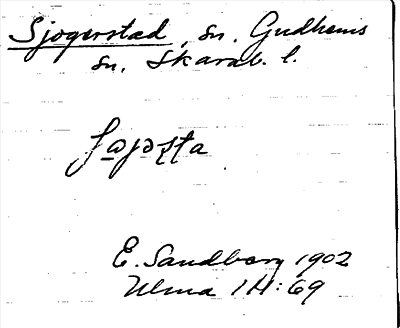 Sjogerstad, sn, Gudhems
sn, Skarab. l.
E. Sandberg 1902
Ulma 1 H: 69